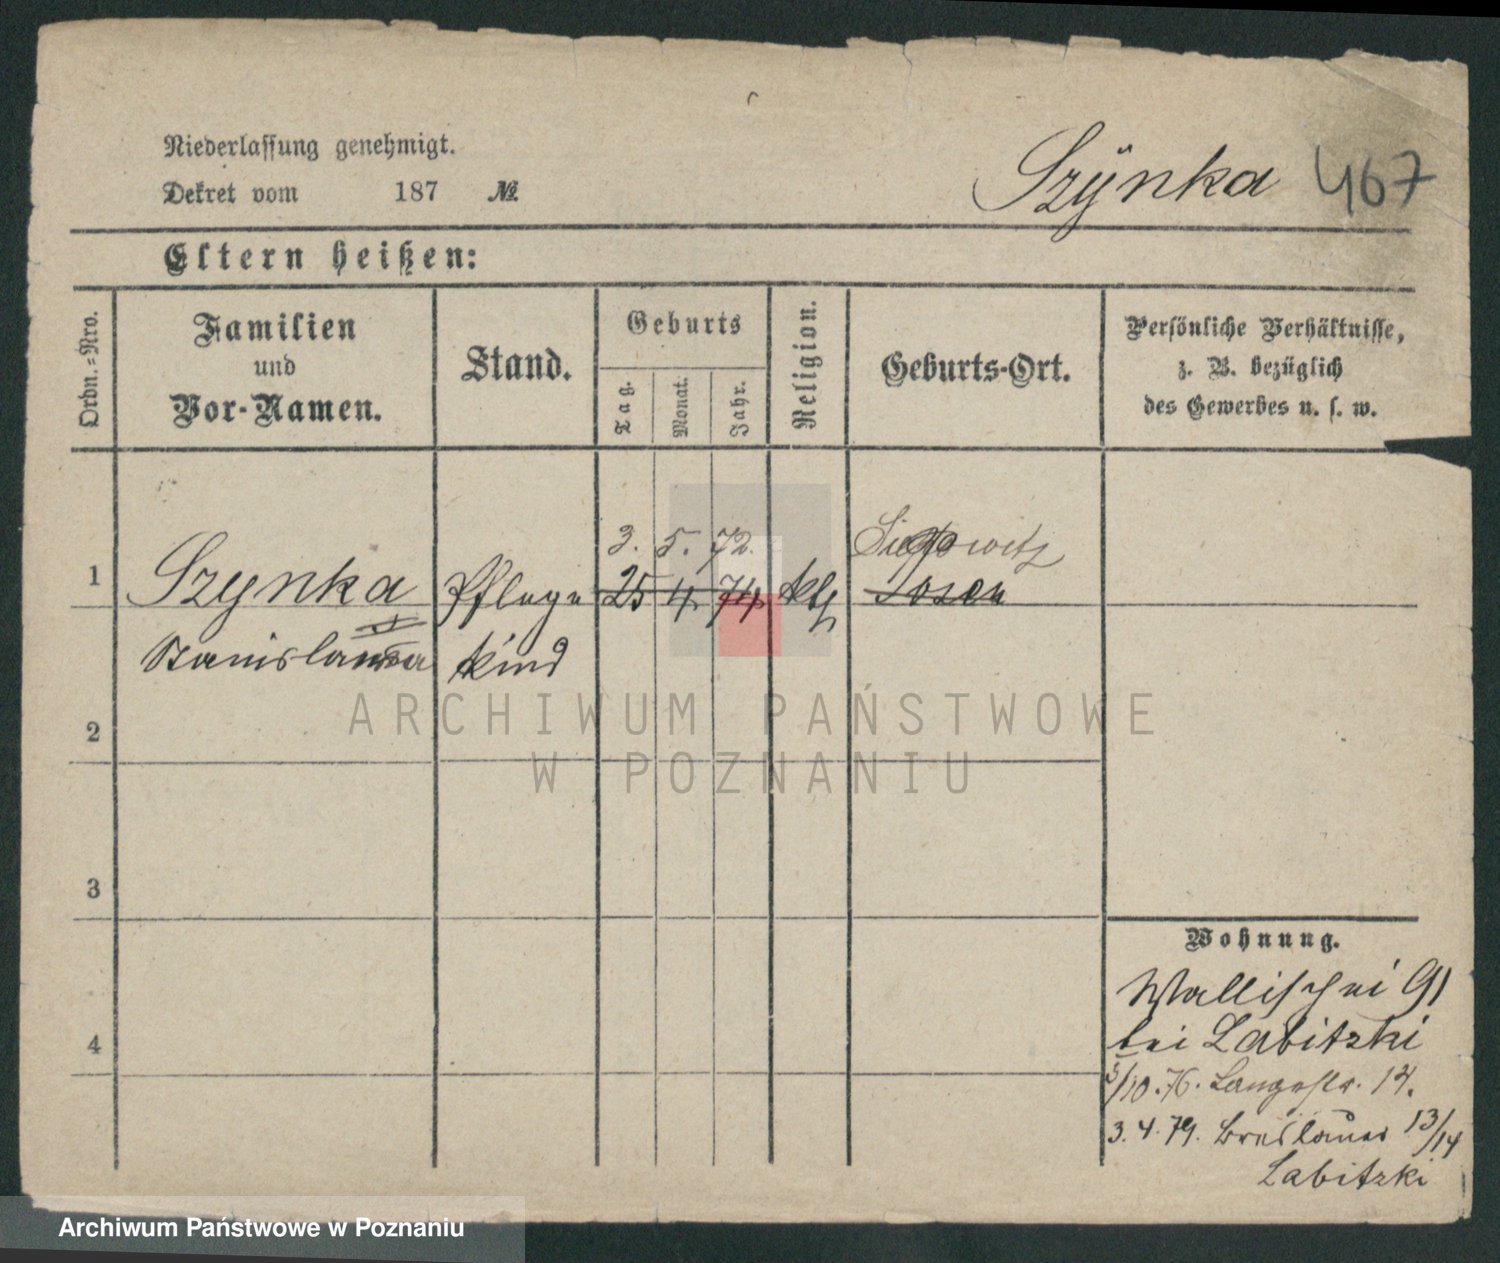 Niederlassung genehmigt.
Dekret vom 187 №
Szÿnka 467
Eltern heißen:
Ordn.-Nro.
Familien
und
Vor-Namen.
Stand.
Geburts
Tag.
Monat.
Jahr.
Religion.
Geburts-Ort.
Persönliche Verhältnisse,
z. B. bezüglich
des Gewerbes u. s. w.
3. 5. 72.
1 Szynka Pflege 25 4. 74. kth Posen
Stanislawa kind
2
3
4
Wohnung.
Wallischei 91
bei Labitzki
5/10.76. Langestr. 14.
3.4.79. Breslauer 13/14
Labitzki
ARCHIWUM PAŃSTWOWE
W POZNANIU
Archiwum Państwowe w Poznaniu